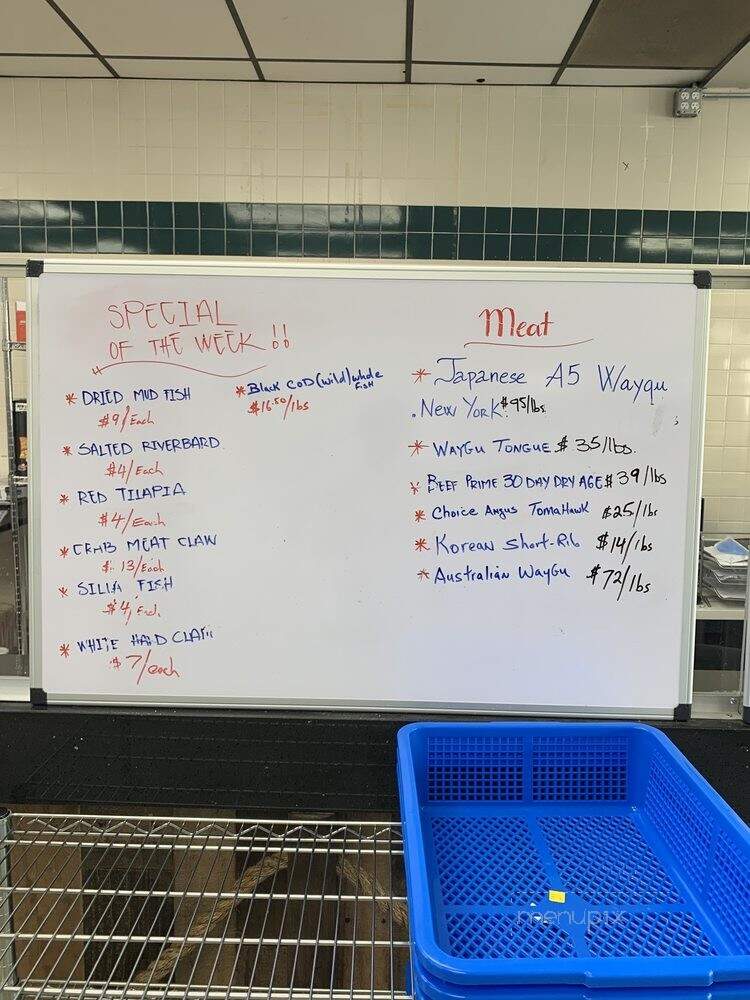 SPECIAL
OF THE WEEK !!
* DRIED MUD FISH
$9/Each
* SALTED RIVERBARD
$4/Each
* RED TILAPIA
$4/Each
* CRAB MEAT CLAW
$13/Each
* SILVA FISH
$4/Each
* WHITE HARD CLAM
$7/each
* Black COD (wild) whole
FISH
$16.50/lbs
Meat
* Japanese A5 Waygu
. New York $95/lbs
* WAYGU TONGUE $35/lbs.
* BEEF PRIME 30 DAY DRY AGE $39/lbs
* Choice Angus TomaHawk $25/lbs
* Korean Short-Rib $14/lbs
* Australian WayGu $72/lbs
menupix